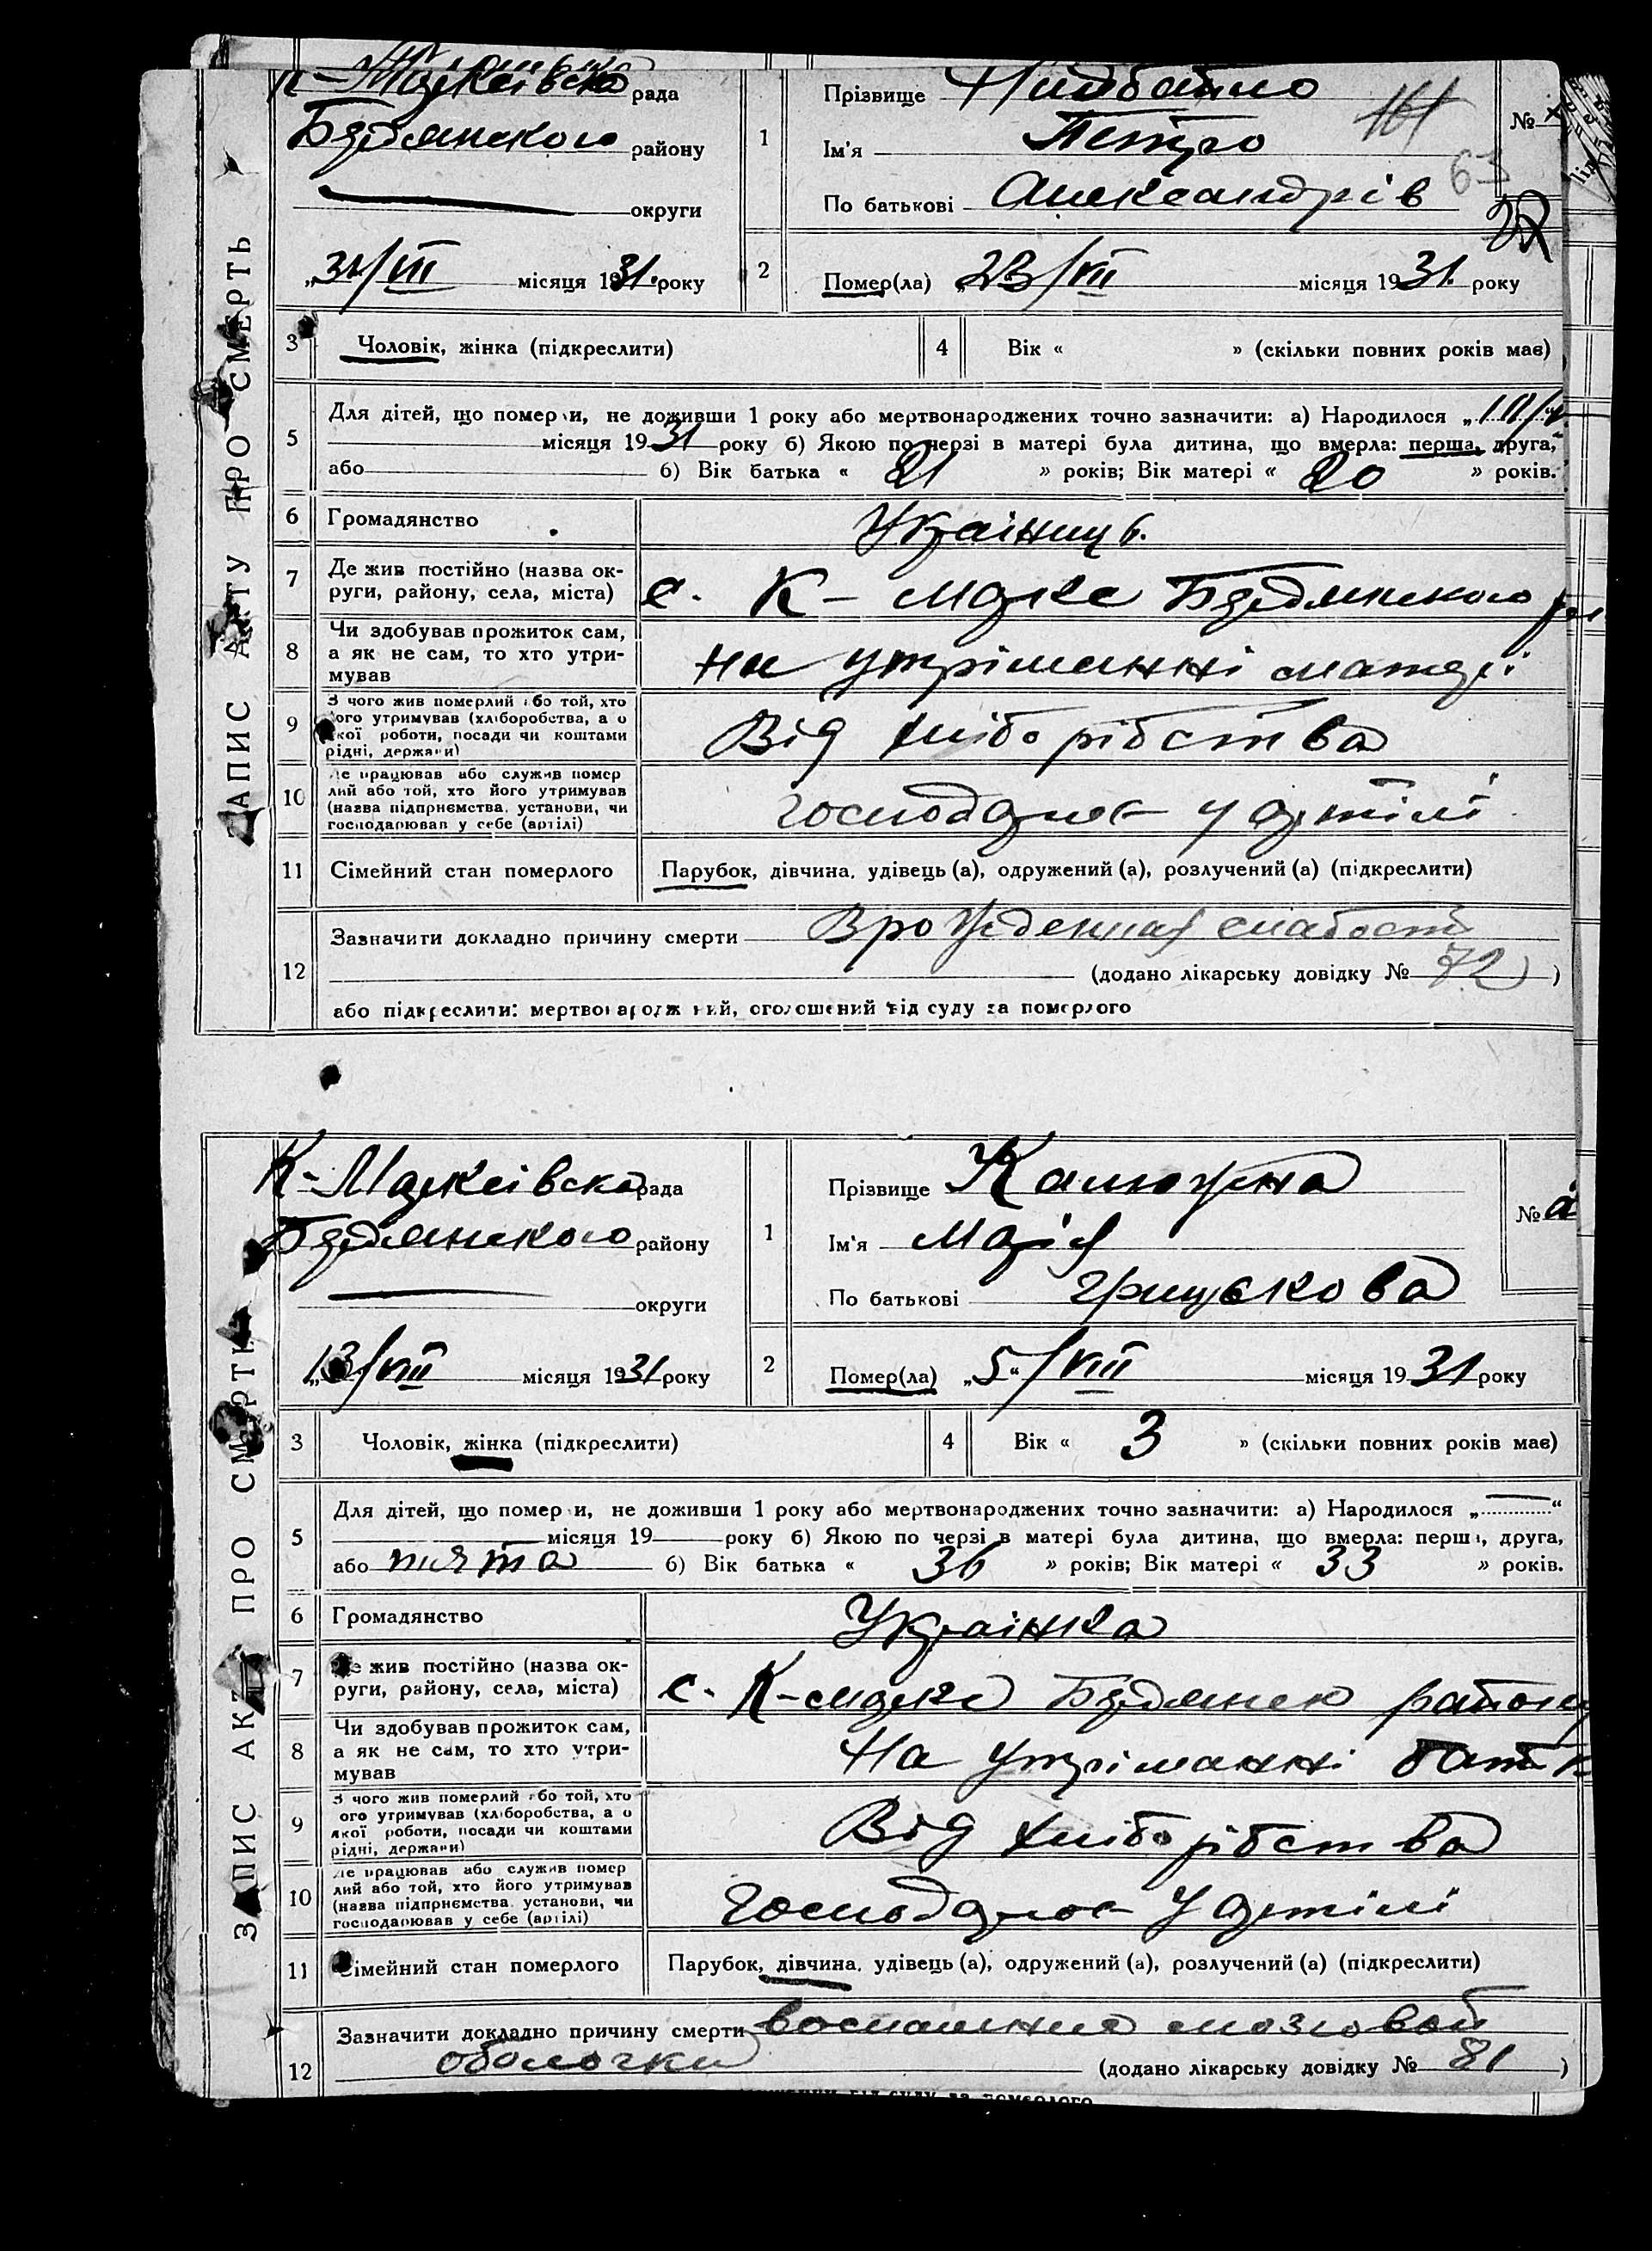 ЗАПИС АКТУ ПРО СМЕРТЬ
К-Маркеівска рада
Бердянского району
округи
„31/VII місяця 1931. року
1
Прізвище Найдбайло
Ім'я Петро
По батькові Александрів
161
63
№
2
Помер(ла) 23/VII місяця 1931. року
3 Чоловік, жінка (підкреслити)
4 Вік « » (скільки повних років має)
5 Для дітей, що померли, не доживши 1 року або мертвонароджених точно зазначити: а) Народилося
місяця 1931 року б) Якою по черзі в матері була дитина, що вмерла: перша, друга,
або б) Вік батька « 21 » років; Вік матері « 20 » років.
6 Громадянство Українць.
7 Де жив постійно (назва ок-
руги, району, села, міста) с. К-Марке Бердянского
8 Чи здобував прожиток сам,
а як не сам, то хто утри-
мував На утріманні матері
9 З чого жив померлий або той, хто
його утримував (хліборобства, а о
якої роботи, посади чи коштами
рідні, держави) Від хліборібства
10 Де працював або служив помер
лий або той, хто його утримував
(назва підприємства, установи, чи
господарював у себе (артілі) Господарює у артілі
11 Сімейний стан померлого Парубок, дівчина, удівець (а), одружений (а), розлучений (а) (підкреслити)
12 Зазначити докладно причину смерти Врожденная слабость
(додано лікарську довідку № 72)
або підкреслити: мертвонароджений, оголошений від суду за померлого
ЗАПИС АКТУ ПРО СМЕРТЬ
К-Маркеівска рада
Бердянского району
округи
„13/VIII місяця 1931 року
1
Прізвище Калюжна
Ім'я Марія
По батькові Грицькова
№
2
Помер(ла) „5“/VIII місяця 1931 року
3 Чоловік, жінка (підкреслити)
4 Вік « 3 » (скільки повних років має)
5 Для дітей, що померли, не доживши 1 року або мертвонароджених точно зазначити: а) Народилося „ “
місяця 19 року б) Якою по черзі в матері була дитина, що вмерла: перша, друга,
або пията б) Вік батька « 36 » років; Вік матері « 33 » років.
6 Громадянство Українка
7 Де жив постійно (назва ок-
руги, району, села, міста) с. К-Марке Бердянск району
8 Чи здобував прожиток сам,
а як не сам, то хто утри-
мував На утріманні батьк
9 З чого жив померлий або той, хто
ого утримував (хліборобства, а о
якої роботи, посади чи коштами
рідні, держави) Від хліборібства
10 Де працював або служив помер
лий або той, хто його утримував
(назва підприємства, установи, чи
господарював у себе (артілі) Господарює у артілі
11 Сімейний стан померлого Парубок, дівчина, удівець (а), одружений (а), розлучений (а) (підкреслити)
12 Зазначити докладно причину смерти воспаление мозговой
оболочки (додано лікарську довідку № 81)